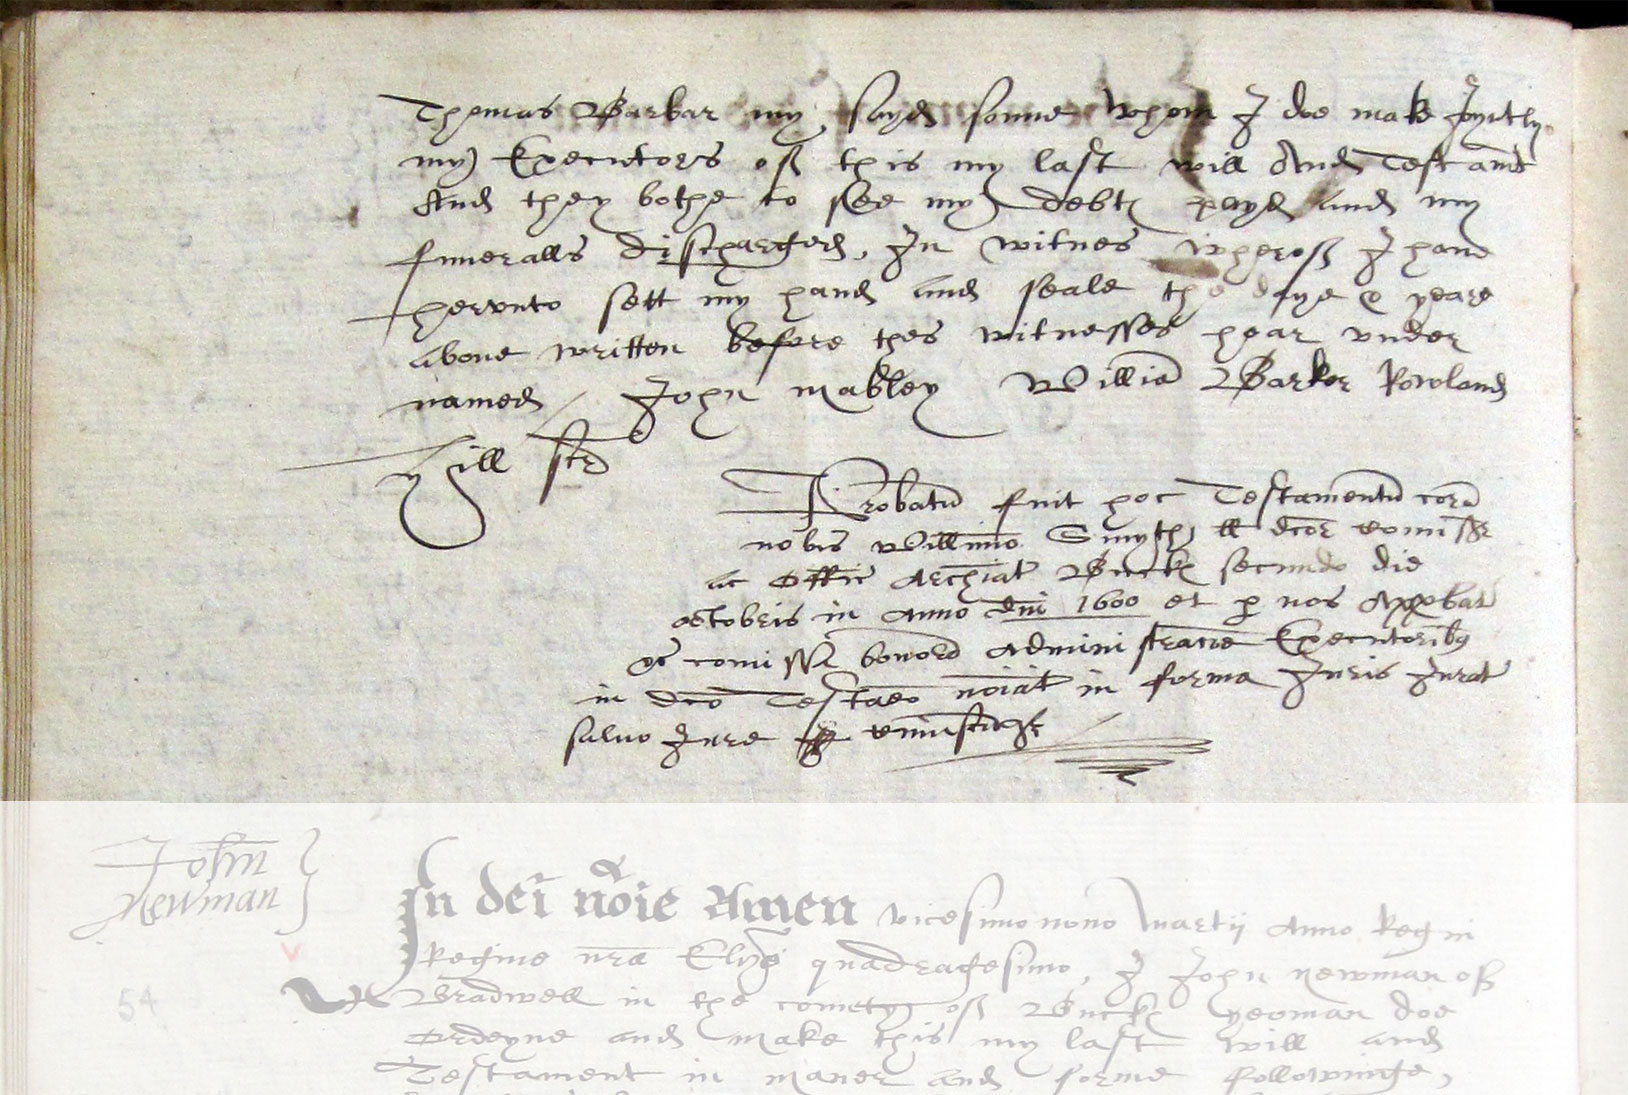 Thomas Barbar my sayd sonne whom I doe make Joyntly
my Executors off this my last will And Testamt
And they bothe to see my debts payd and my
funeralls discharged, In witnes wheroff I haue
herunto sett my hand and seale the daye & yeare
aboue written before thes witnesses hear vnder
named / John Mabley Willia Barker Rowland
Hill
Probatu fuit hoc Testamentu cora
nobis Willimo Smyth ll dcor Comisse
ac Offic Archiat Bucks secundo die
octobris in Anno dni 1600 et p nos Approbat
et comissa bonoru Administracio Executoribus
in dco Testaeo noiat in forma Juris Jurat
saluo Jure
John
Newman
In dei noie Amen vicesimo nono Martij Anno Regni
Regine nre Elyz quadragesimo, I John Newman off
54
Bradwell in the comety off Bucks yeoman doe
Ordeyne and make this my last will and
Testament in maner and forme followinge,